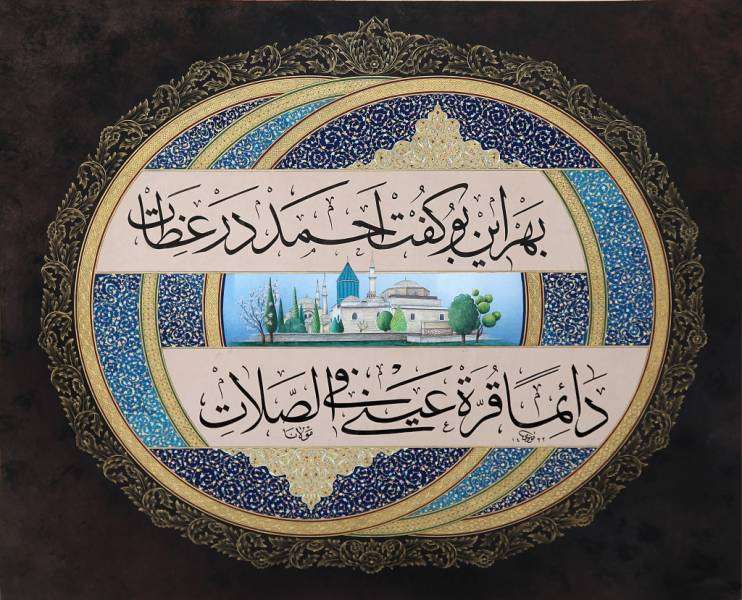 بَهرِ این بو گفت احمد در عِظات
دائماً قُرّةُ عینی فی الصّلات
مولانا
۱۴۲۲